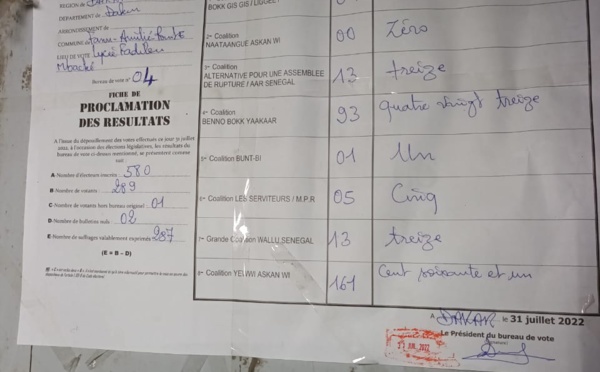 REGION DE
DEPARTEMENT DE Dakar
ARRONDISSEMENT DE
COMMUNE
LIEU DE VOTE Lycée Fadilou
Mbacké
Bureau de vote N° 04
FICHE DE
PROCLAMATION
DES RESULTATS
A l'issue du dépouillement des votes effectués ce jour 31 juillet
2022, à l'occasion des élections législatives, les résultats du
bureau de vote ci-dessus mentionné, se présentent comme
suit
A- Nombre d'électeurs inscrits 580
B- Nombre de votants 289
C- Nombre de votants hors bureau originel 01
D- Nombre de bulletins nuls 02
E- Nombre de suffrages valablement exprimés 287
(E = B – D)
BOKK GIS GIS / LIGUEEY
2e Coalition
NAATAANGUE ASKAN WI
00
Zéro
3e Coalition
ALTERNATIVE POUR UNE ASSEMBLEE
DE RUPTURE / AAR SENEGAL
13
treize
4e Coalition
BENNO BOKK YAAKAAR
93
quatre vingt treize
5e Coalition BUNT-BI
01
Un
6e Coalition LES SERVITEURS / M.P.R
05
Cinq
7e Grande Coalition WALLU SENEGAL
13
treize
8e Coalition YEWWI ASKAN WI
161
Cent soixante et un
A DAKAR le 31 juillet 2022
Le Président du bureau de vote